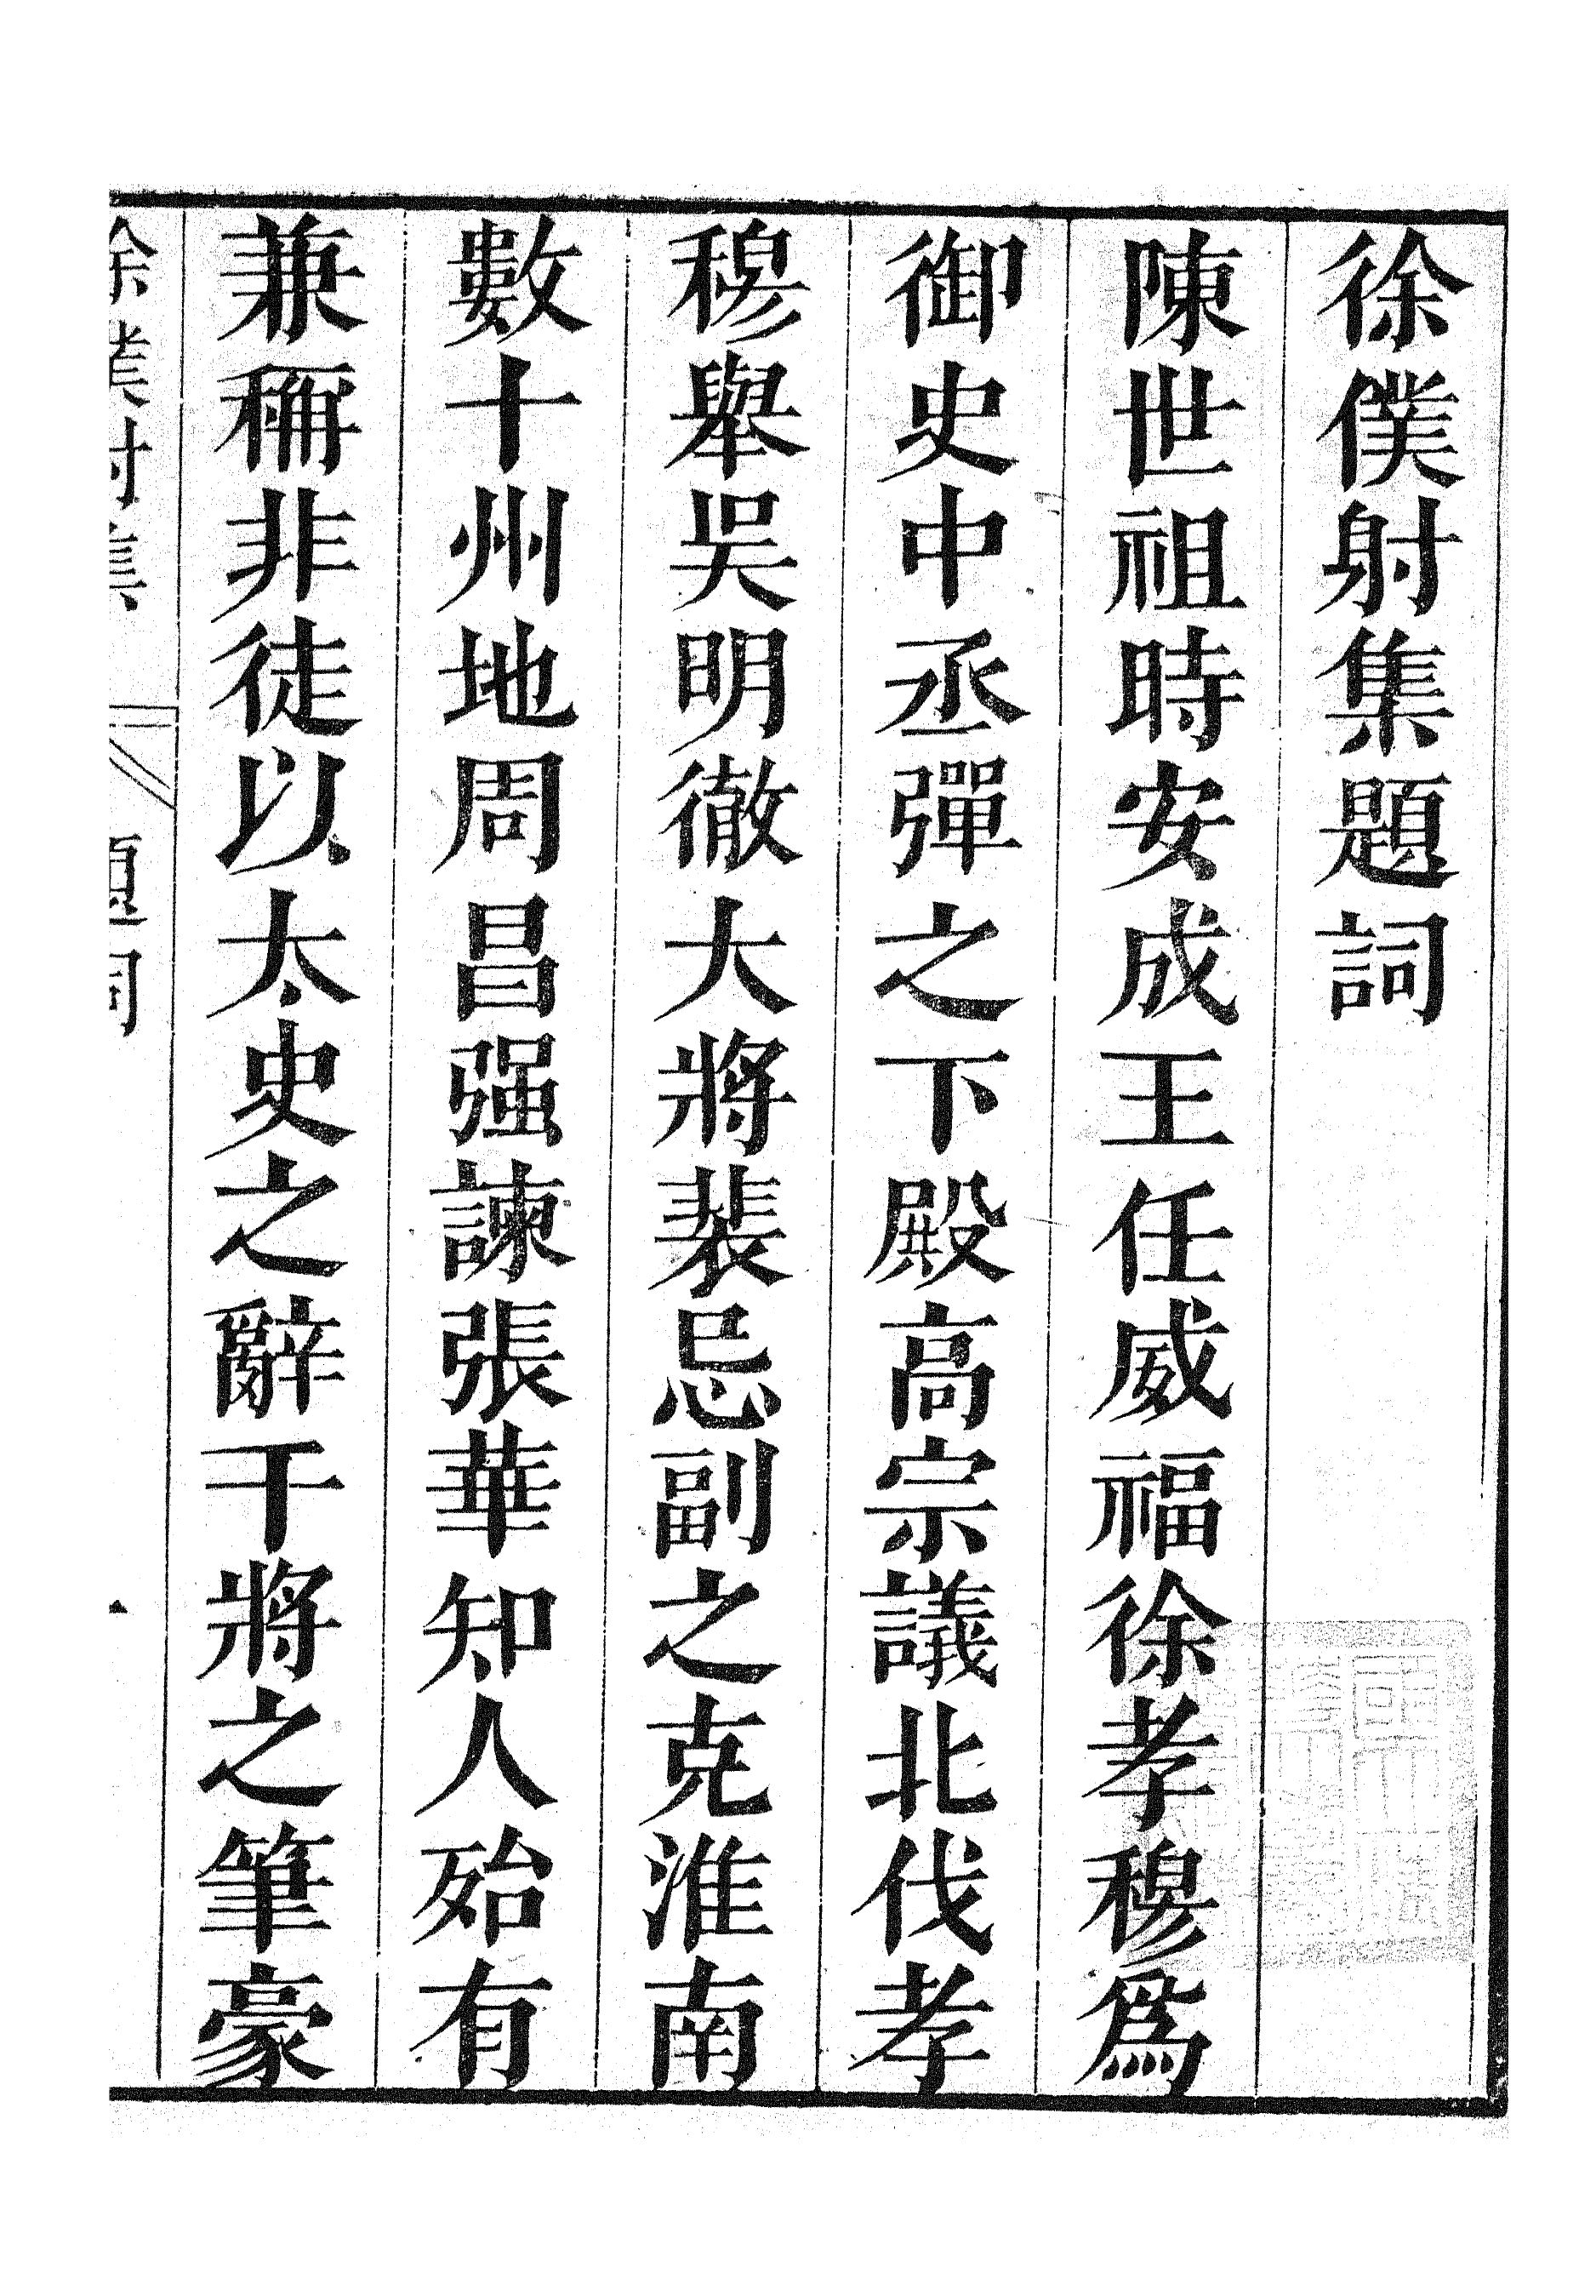 徐僕射集題詞
陳世祖時安成王任威福徐孝穆爲
御史中丞彈之下殿高宗議北伐孝
穆舉吳明徹大將裴忌副之克淮南
數十州地周昌强諫張華知人殆有
兼稱非徒以太史之辭干將之筆豪
徐僕射集 題詞